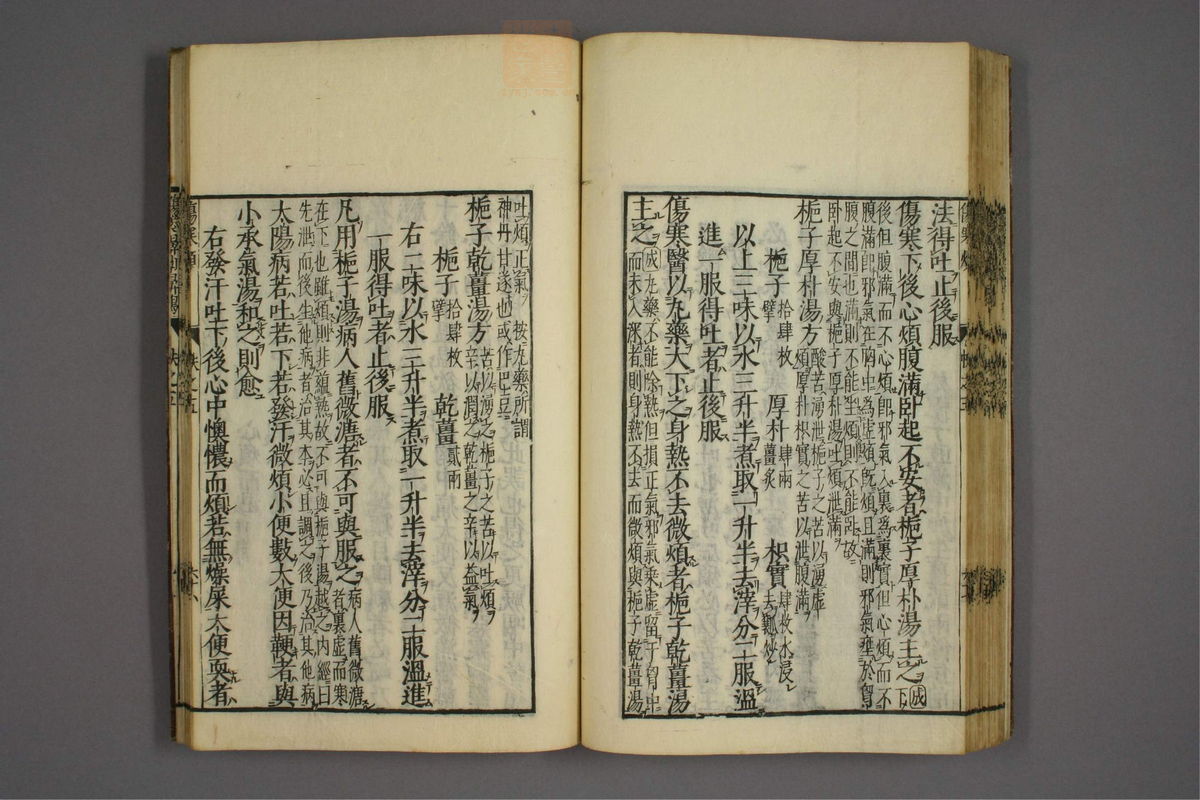 法得吐止後服
傷寒下後心煩腹滿臥起不安者梔子厚朴湯主之 成 下
後但腹滿而不心煩卽邪氣入裏爲裏實但心煩而不
腹滿卽邪氣在胸中爲虛煩旣煩且滿則邪氣壅於胸
腹之間也滿則不能坐煩則不能臥故
臥起不安與梔子厚朴湯吐煩泄滿
梔子厚朴湯方 酸苦湧泄梔子之苦以湧虛
煩厚朴枳實之苦以泄腹滿
梔子 拾肆枚擘 厚朴 肆兩薑炙 枳實 肆枚水浸去瓤炒
以上三味以水三升半煮取一升半去滓分二服溫
進一服得吐者止後服
傷寒醫以丸藥大下之身熱不去微煩者梔子乾薑湯
主之 成 丸藥不能除熱但損正氣邪氣乘虛留于胷中
而未入深者則身熱不去而微煩與梔子乾薑湯
吐煩正氣 按丸藥所謂
神丹甘遂也或作巴豆
梔子乾薑湯方 苦以湧之梔子之苦以吐煩
辛以潤之乾薑之辛以益氣
梔子 拾肆枚擘 乾薑 貳兩
右二味以水三升半煮取一升半去滓分二服溫進
一服得吐者止後服
凡用梔子湯病人舊微溏者不可與服之 病人舊微溏
者裏虛而寒
在下也雖煩則非蘊熱故不可與梔子湯越之內經曰
先泄而後生他病者治其本必且調之後乃治其他病
太陽病若吐若下若發汗微煩小便數大便因鞕者與
小承氣湯和之則愈
右發汗吐下後心中懊憹而煩若無燥屎大便耎者